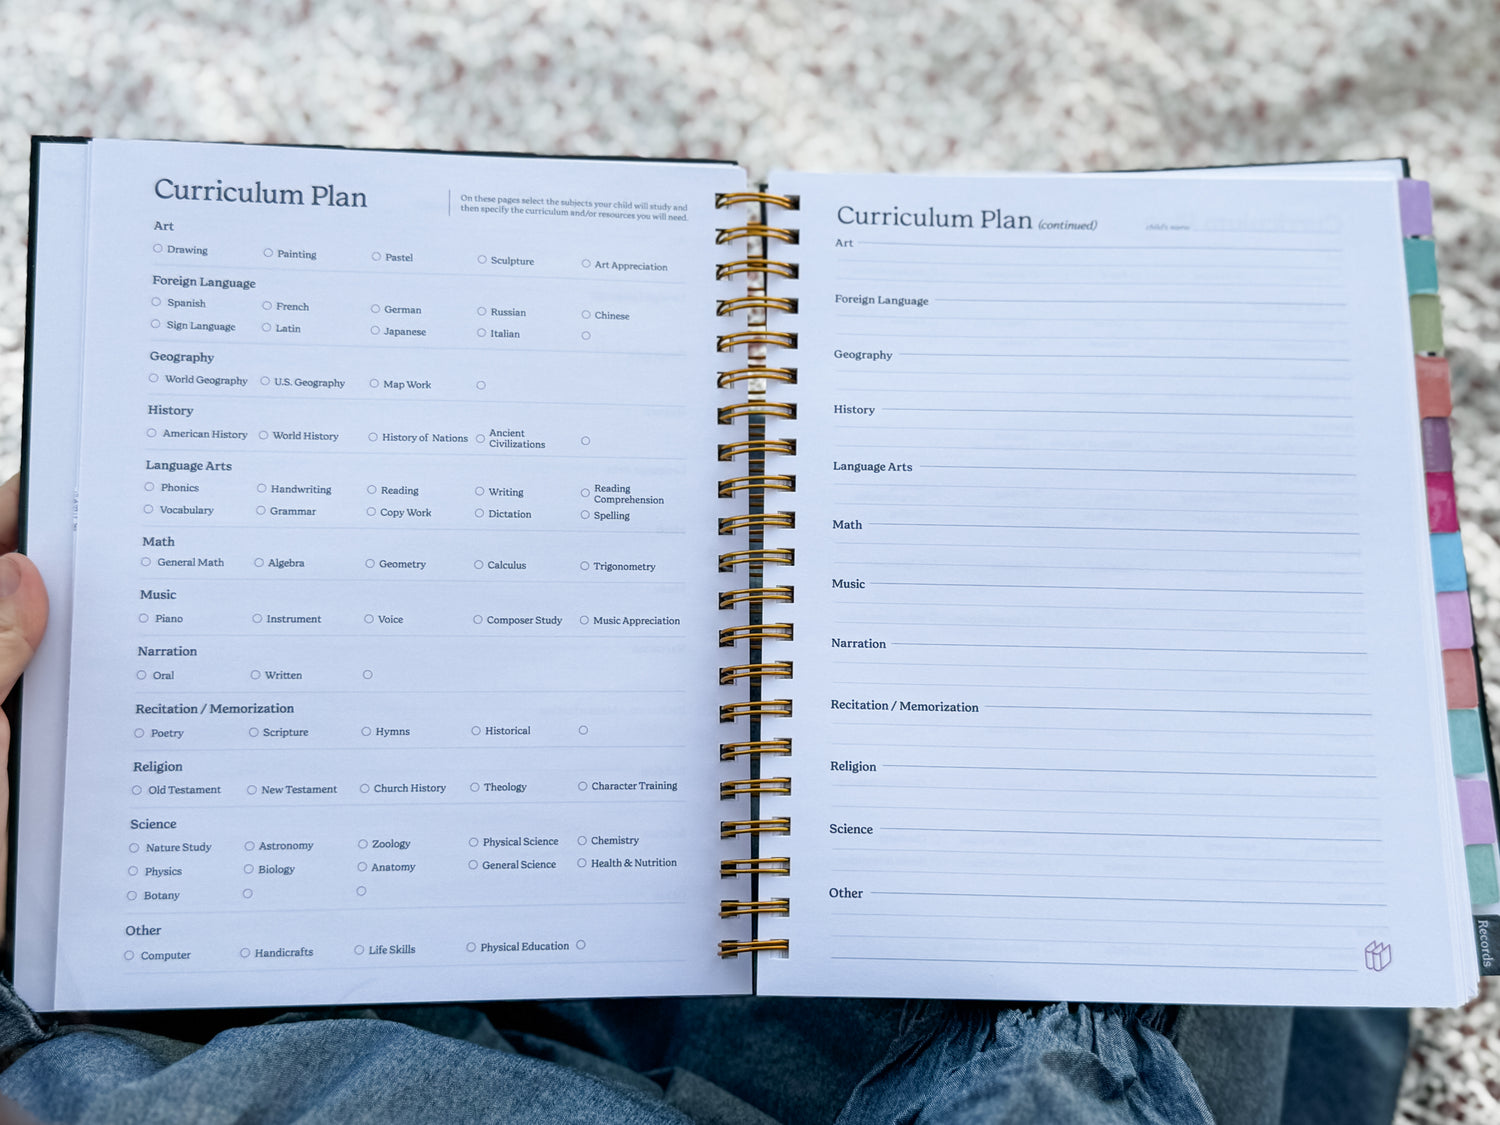 Curriculum Plan
On these pages select the subjects your child will study and
then specify the curriculum and/or resources you will need.
Art
Drawing Painting Pastel Sculpture Art Appreciation
Foreign Language
Spanish French German Russian Chinese
Sign Language Latin Japanese Italian
Geography
World Geography U.S. Geography Map Work
History
American History World History History of Nations Ancient
Civilizations
Language Arts
Phonics Handwriting Reading Writing Reading
Comprehension
Vocabulary Grammar Copy Work Dictation Spelling
Math
General Math Algebra Geometry Calculus Trigonometry
Music
Piano Instrument Voice Composer Study Music Appreciation
Narration
Oral Written
Recitation / Memorization
Poetry Scripture Hymns Historical
Religion
Old Testament New Testament Church History Theology Character Training
Science
Nature Study Astronomy Zoology Physical Science Chemistry
Physics Biology Anatomy General Science Health & Nutrition
Botany
Other
Computer Handicrafts Life Skills Physical Education
Curriculum Plan (continued)
child's name
Art
Foreign Language
Geography
History
Language Arts
Math
Music
Narration
Recitation / Memorization
Religion
Science
Other
Records